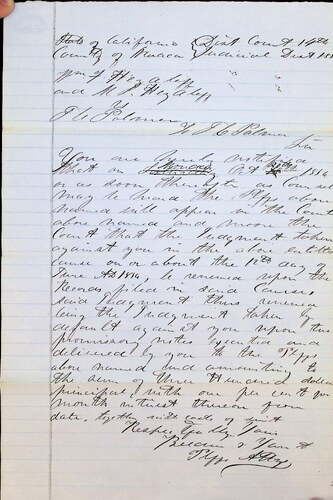 State of California } Dist Court 14th
County of } Judicial Dist
Wm H
and M P
vs
F G Palomar
To F G Palomar
Sir
You are hereby notified
that on Monday Oct
or as soon thereafter as Counsel
may be heard the Plffs above
named will appear in the Court
above named and move the
Court that the Judgment taken
against you in the above entitled
cause on or about the 18th day
June AD 1874, be renewed upon the
Records filed in said Cause,
said Judgment thus renewed
being the Judgment taken by
default against you upon two
promissory notes executed and
delivered by you to the Plffs
above named and amounting to
the sum of three Hundred dollars
principal, with one per cent per
month interest thereon from
date. together with costs of suit
Respectfully Yours
&
Plffs Attys